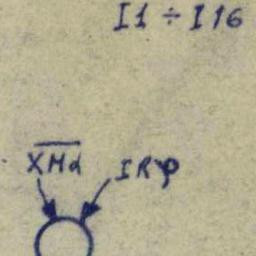 I1 ÷ I16
X̅H̅d̅ IRφ